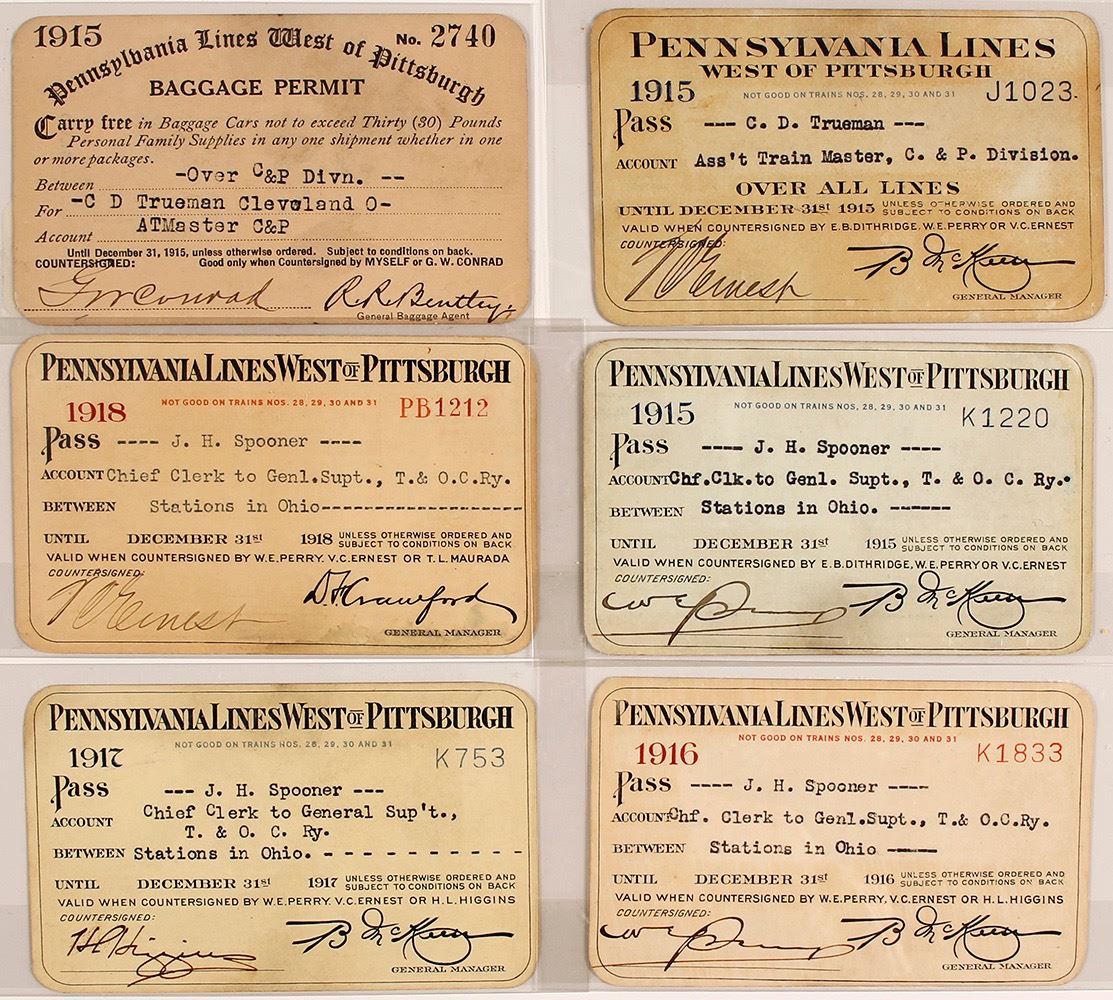 1915
No. 2740
Pennsylvania Lines West of Pittsburgh
BAGGAGE PERMIT
Carry free in Baggage Cars not to exceed Thirty (30) Pounds
Personal Family Supplies in any one shipment whether in one
or more packages.
Between -Over C&P Divn. --
For -C D Trueman Cleveland O-
Account ATMaster C&P
Until December 31, 1915, unless otherwise ordered. Subject to conditions on back.
COUNTERSIGNED: Good only when Countersigned by MYSELF or G. W. CONRAD
G W Conrad R. R. Bentley
General Baggage Agent
PENNSYLVANIA LINES
WEST OF PITTSBURGH
1915 NOT GOOD ON TRAINS NOS. 28, 29, 30 AND 31 J1023
Pass --- C. D. Trueman ---
ACCOUNT Ass't Train Master, C. & P. Division.
OVER ALL LINES
UNTIL DECEMBER 31st 1915 UNLESS OTHERWISE ORDERED AND
SUBJECT TO CONDITIONS ON BACK
VALID WHEN COUNTERSIGNED BY E.B.DITHRIDGE, W.E.PERRY OR V.C.ERNEST
COUNTERSIGNED:
V C Ernest B McKeen
GENERAL MANAGER
PENNSYLVANIA LINES WEST OF PITTSBURGH
1918 NOT GOOD ON TRAINS NOS. 28, 29, 30 AND 31 PB1212
Pass ---- J. H. Spooner ----
ACCOUNT Chief Clerk to Genl.Supt., T.& O.C.Ry.
BETWEEN Stations in Ohio-------------------
UNTIL DECEMBER 31st 1918 UNLESS OTHERWISE ORDERED AND
SUBJECT TO CONDITIONS ON BACK
VALID WHEN COUNTERSIGNED BY W.E.PERRY, V.C.ERNEST OR T.L.MAURADA
COUNTERSIGNED:
V C Ernest D F Crawford
GENERAL MANAGER
PENNSYLVANIA LINES WEST OF PITTSBURGH
1915 NOT GOOD ON TRAINS NOS. 28, 29, 30 AND 31 K1220
Pass ---- J. H. Spooner ----
ACCOUNT Chf.Clk.to Genl. Supt., T. & O. C. Ry.
BETWEEN Stations in Ohio. ------
UNTIL DECEMBER 31st 1915 UNLESS OTHERWISE ORDERED AND
SUBJECT TO CONDITIONS ON BACK
VALID WHEN COUNTERSIGNED BY E.B.DITHRIDGE, W.E.PERRY OR V.C.ERNEST
COUNTERSIGNED:
W E Perry B McKeen
GENERAL MANAGER
PENNSYLVANIA LINES WEST OF PITTSBURGH
1917 NOT GOOD ON TRAINS NOS. 28, 29, 30 AND 31 K753
Pass --- J. H. Spooner ---
ACCOUNT Chief Clerk to General Sup't.,
T. & O. C. Ry.
BETWEEN Stations in Ohio. - - - - - - - - - - -
UNTIL DECEMBER 31st 1917 UNLESS OTHERWISE ORDERED AND
SUBJECT TO CONDITIONS ON BACK
VALID WHEN COUNTERSIGNED BY W.E.PERRY, V.C.ERNEST OR H.L.HIGGINS
COUNTERSIGNED:
H L Higgins B McKeen
GENERAL MANAGER
PENNSYLVANIA LINES WEST OF PITTSBURGH
1916 NOT GOOD ON TRAINS NOS. 28, 29, 30 AND 31 K1833
Pass ---- J. H. Spooner ----
ACCOUNT Chf. Clerk to Genl.Supt., T.& O.C.Ry.
BETWEEN Stations in Ohio -----
UNTIL DECEMBER 31st 1916 UNLESS OTHERWISE ORDERED AND
SUBJECT TO CONDITIONS ON BACK
VALID WHEN COUNTERSIGNED BY W.E.PERRY, V.C.ERNEST OR H.L.HIGGINS
COUNTERSIGNED:
W E Perry B McKeen
GENERAL MANAGER